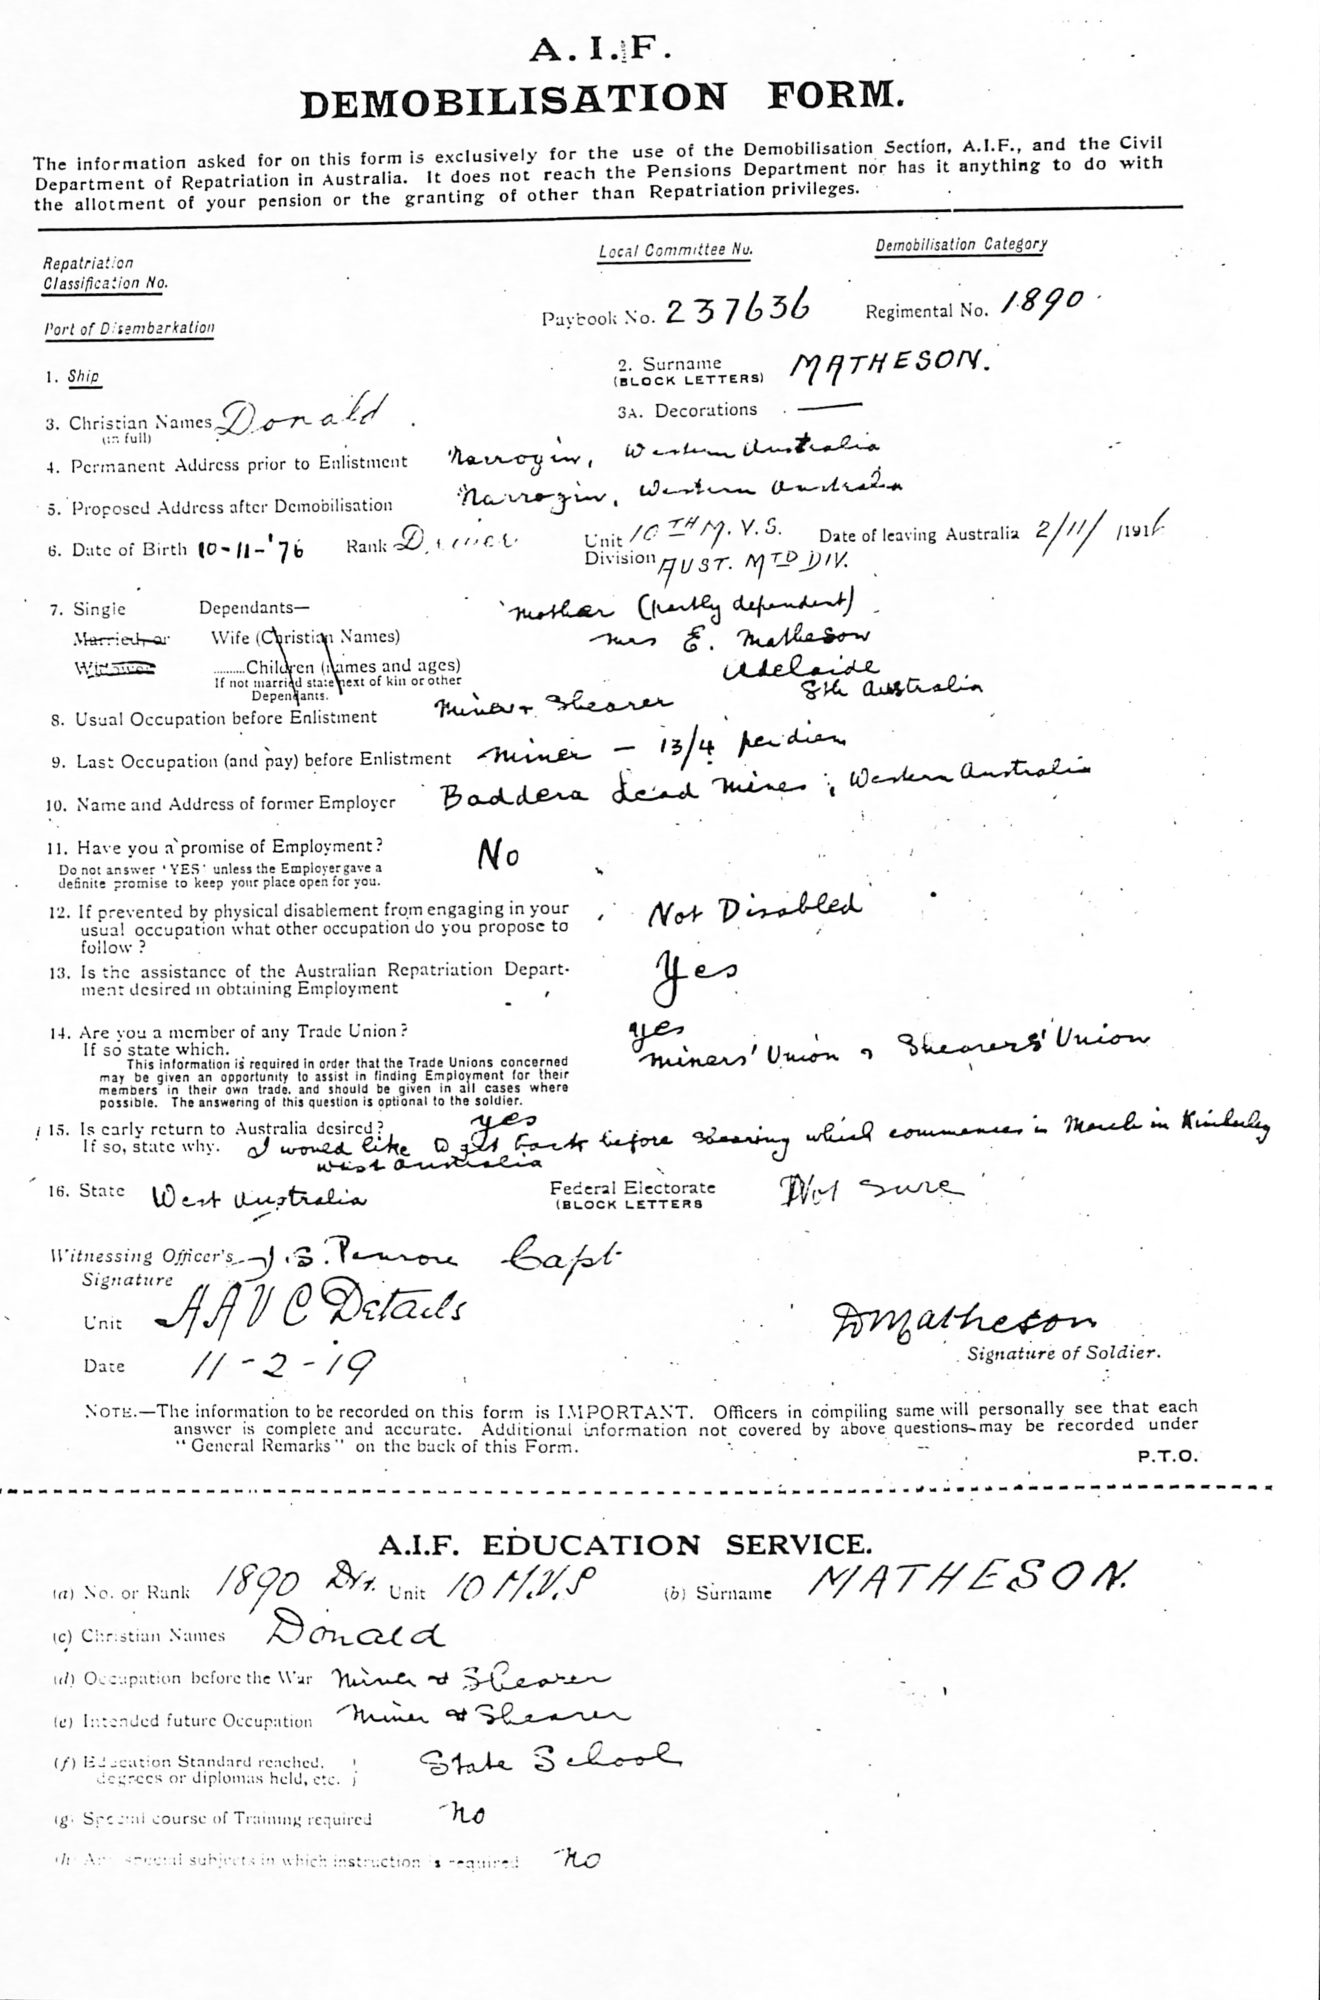 A. I. F.
DEMOBILISATION FORM.
The information asked for on this form is exclusively for the use of the Demobilisation Section, A.I.F., and the Civil
Department of Repatriation in Australia. It does not reach the Pensions Department nor has it anything to do with
the allotment of your pension or the granting of other than Repatriation privileges.
Repatriation Classification No.
Local Committee No.
Demobilisation Category
Port of Disembarkation
Paybook No. 237636 Regimental No. 1890
1. Ship
2. Surname MATHESON.
(BLOCK LETTERS)
3. Christian Names Donald
(in full)
3A. Decorations —
4. Permanent Address prior to Enlistment Narrogin, Western Australia
5. Proposed Address after Demobilisation Narrogin, Western Australia
6. Date of Birth 10-11-'76 Rank Driver Unit 10TH M.V.S. Date of leaving Australia 2/11/1916
Division AUST. MTD DIV.
7. Single Dependants— Mother (partly dependent)
Married, or Wife (Christian Names) Mrs E. Matheson
Widower ..........Children (names and ages) Adelaide
If not married state next of kin or other Sth Australia
Dependants.
8. Usual Occupation before Enlistment Miner & Shearer
9. Last Occupation (and pay) before Enlistment Miner – 13/4 per diem
10. Name and Address of former Employer Baddera Lead Mines, Western Australia
11. Have you a promise of Employment? No
Do not answer 'YES' unless the Employer gave a
definite promise to keep your place open for you.
12. If prevented by physical disablement from engaging in your Not Disabled
usual occupation what other occupation do you propose to
follow?
13. Is the assistance of the Australian Repatriation Depart- Yes
ment desired in obtaining Employment
14. Are you a member of any Trade Union? yes
If so state which. Miners' Union & Shearers' Union
This information is required in order that the Trade Unions concerned
may be given an opportunity to assist in finding Employment for their
members in their own trade, and should be given in all cases where
possible. The answering of this question is optional to the soldier.
15. Is early return to Australia desired? yes
If so, state why. I would like to get back before shearing which commences in March in Kimberley
West Australia
16. State West Australia Federal Electorate Not sure
(BLOCK LETTERS
Witnessing Officer's J. S. Penrose Capt
Signature
Unit AAVC Details
D Matheson
Signature of Soldier.
Date 11-2-19
NOTE.—The information to be recorded on this form is IMPORTANT. Officers in compiling same will personally see that each
answer is complete and accurate. Additional information not covered by above questions may be recorded under
"General Remarks" on the back of this Form.
P.T.O.
A.I.F. EDUCATION SERVICE.
(a) No. or Rank 1890 Dvr. Unit 10 M.V.S (b) Surname MATHESON.
(c) Christian Names Donald
(d) Occupation before the War Miner & Shearer
(e) Intended future Occupation Miner & Shearer
(f) Education Standard reached, State School
degrees or diplomas held, etc.
(g) Special course of Training required No
(h) Any special subjects in which instruction is required No